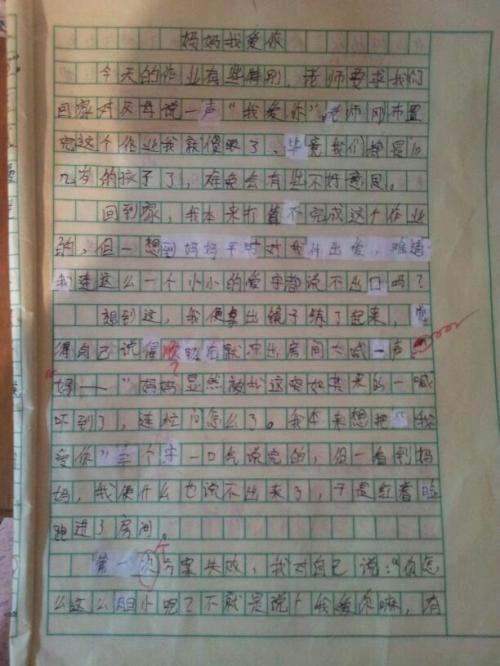 妈妈我爱你
今天的作业有些特别，老师要求我们
回家对父母说一声“我爱你”，老师刚布置
完这个作业我就傻眼了，毕竟我们都是十
几岁的孩子了，难免会有些不好意思。
回到家，我本来打算不完成这个作业
的，但一想到妈妈平时对我付出爱，难道
我连这么一个小小的爱字都说不出口吗？
想到这，我便拿出镜子练了起来，
得自己说得顺 后就冲出房间大喊一声
妈——”妈妈显然被我这突如其来的一喊
吓到了，连忙问怎么了。我本来想把“我
爱你”三个字一口气说完的，但一看到妈
妈，我便什么也说不出来了，于是红着脸
跑进了房间
第一次方案失败，我对自己说：“你怎
么这么胆小呢？不就是说个我爱你嘛，有